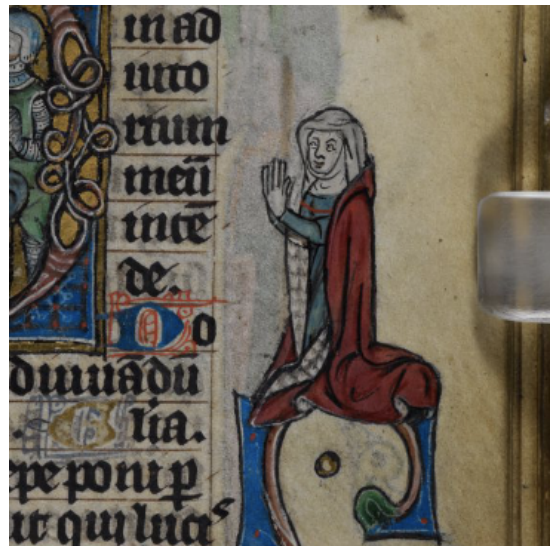 in ad
iuto
rium
meū
inte
de.
Do
ad iuuādū
G lia.
epe poni ꝑ
ut qui luctˢ